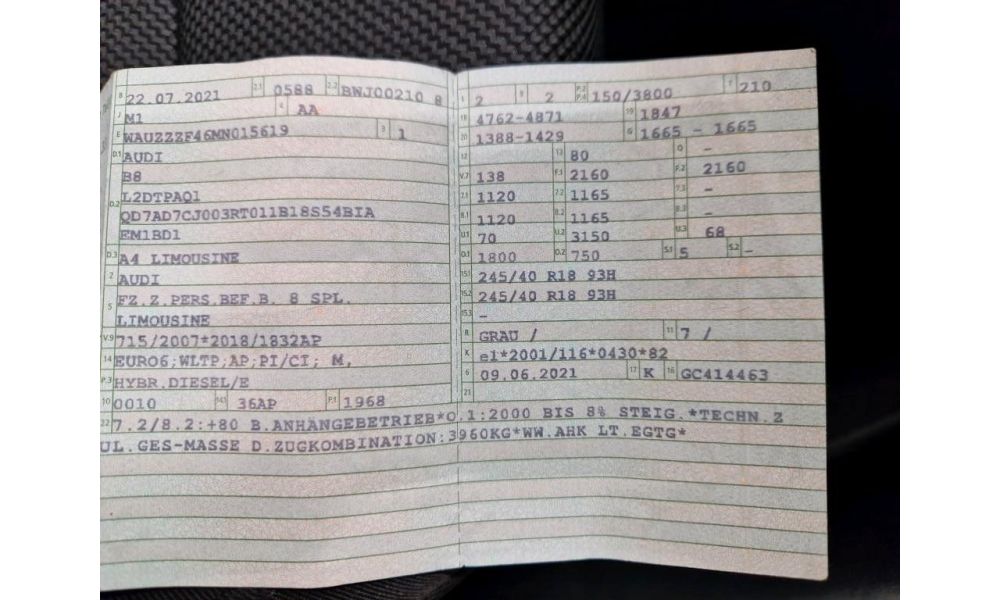 B 22.07.2021 2.1 0588 2.2 BWJ00210 8
J M1 4 AA
E WAUZZZF46MN015619 3 1
D.1 AUDI
B8
D.2 L2DTPAQ1
QD7AD7CJ003RT011B18S54BIA
EM1BD1
D.3 A4 LIMOUSINE
2 AUDI
5 FZ.Z.PERS.BEF.B. 8 SPL.
LIMOUSINE
V.9 715/2007*2018/1832AP
14 EURO6;WLTP;AP;PI/CI; M,
P.3 HYBR.DIESEL/E
10 0010 14.1 36AP P.1 1968
L 2 9 2 P.2 P.4 150/3800 T 210
18 4762-4871 19 1847
20 1388-1429 G 1665 - 1665
12 13 80 Q -
V.7 138 F.1 2160 F.2 2160
7.1 1120 7.2 1165 7.3 -
8.1 1120 8.2 1165 8.3 -
U.1 70 U.2 3150 U.3 68
O.1 1800 O.2 750 S.1 5 S.2 -
15.1 245/40 R18 93H
15.2 245/40 R18 93H
15.3 -
R GRAU / 11 7 /
K e1*2001/116*0430*82
6 09.06.2021 17 K 16 GC414463
21
22 7.2/8.2:+80 B.ANHÄNGEBETRIEB*O.1:2000 BIS 8% STEIG.*TECHN.Z
UL.GES-MASSE D.ZUGKOMBINATION:3960KG*WW.AHK LT.EGTG*